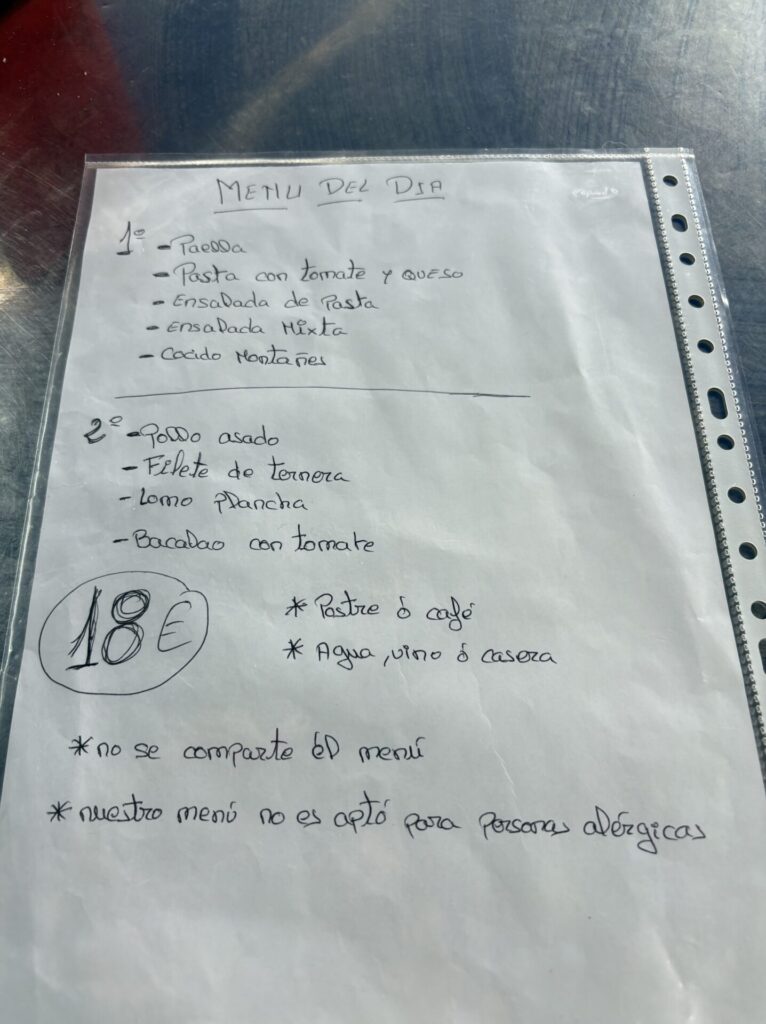 MENU DEL DIA
1º - Paella
- Pasta con tomate y QUESO
- ENSALADA de Pasta
- ENSALADA Mixta
- Cocido Montañes
2º - Pollo asado
- Filete de ternera
- Lomo plancha
- Bacalao con tomate
18 €
* Postre ó café
* Agua, vino ó casera
* no se comparte él menú
* nuestro menú no es aptó para personas alérgicas